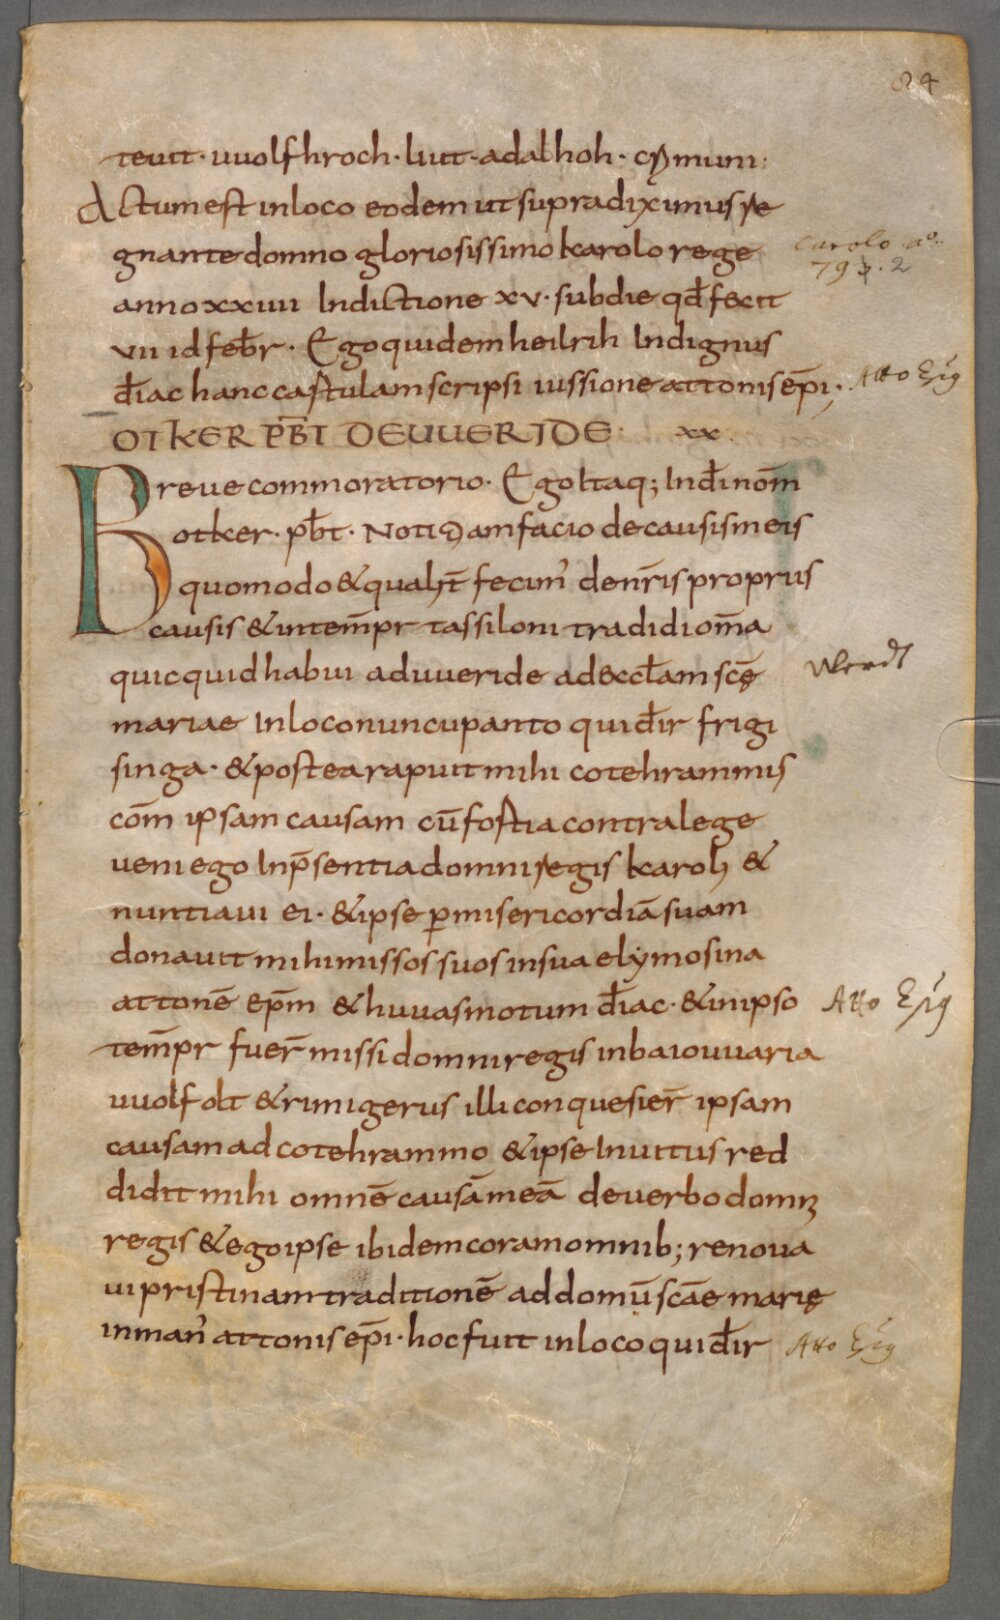 84
teuit · uuolfhroch · liut · adalhoh · cẏmuni:
Actum est in loco eodem ut supra diximus re
gnante domno gloriosissimo karolo rege
Carolo aº
anno xxiiii Indictione xv · sub die qđ fecit
vii id feb̄r · Ego quidem heilrih Indignus
điac hanc cartulam scripsi iussione attonis ep̄i;
Atto Ep̄s
OTKER PB̄T DE UUERIDE · xx ·
Breue commoratorio · Ego Itaq; In đi nom̄
otker · pb̄t · Notitiam facio de causis meis
quomodo & qualit̄ fecim̓ de nr̄is propriis
causis & in tem̄pr tassiloni tradidi om̄a
quicquid habui ad uueride ad eccl̄am scę̄
Werdt
mariae In loco nuncupanto qui đir frigi
singa · & postea rapuit mihi cotehrammis
com̄ ipsam causam cū fortia contra lege
ueni ego In p̄sentia domni regis karoli &
nuntiaui ei · & ipse ꝑ misericordiā suam
donauit mihi missos suos in sua elẏmosina
attonē ep̄m & huuasmotum điac · & in ipso
Atto Ep̄s
tem̄pr fuer̄ missi domni regis in baiouuaria
uuolfolt & rimigerus illi conquesier̄ ipsam
causam ad cotehrammo & ipse Inuitus red
didit mihi omnē causā meā de uerbo domni
regis & ego ipse ibidem coram omnib; renoua
ui pristinam traditionē ad domū scāe marię
in man̓ attonis ep̄i · hoc fuit in loco qui đir
Atto Ep̄s